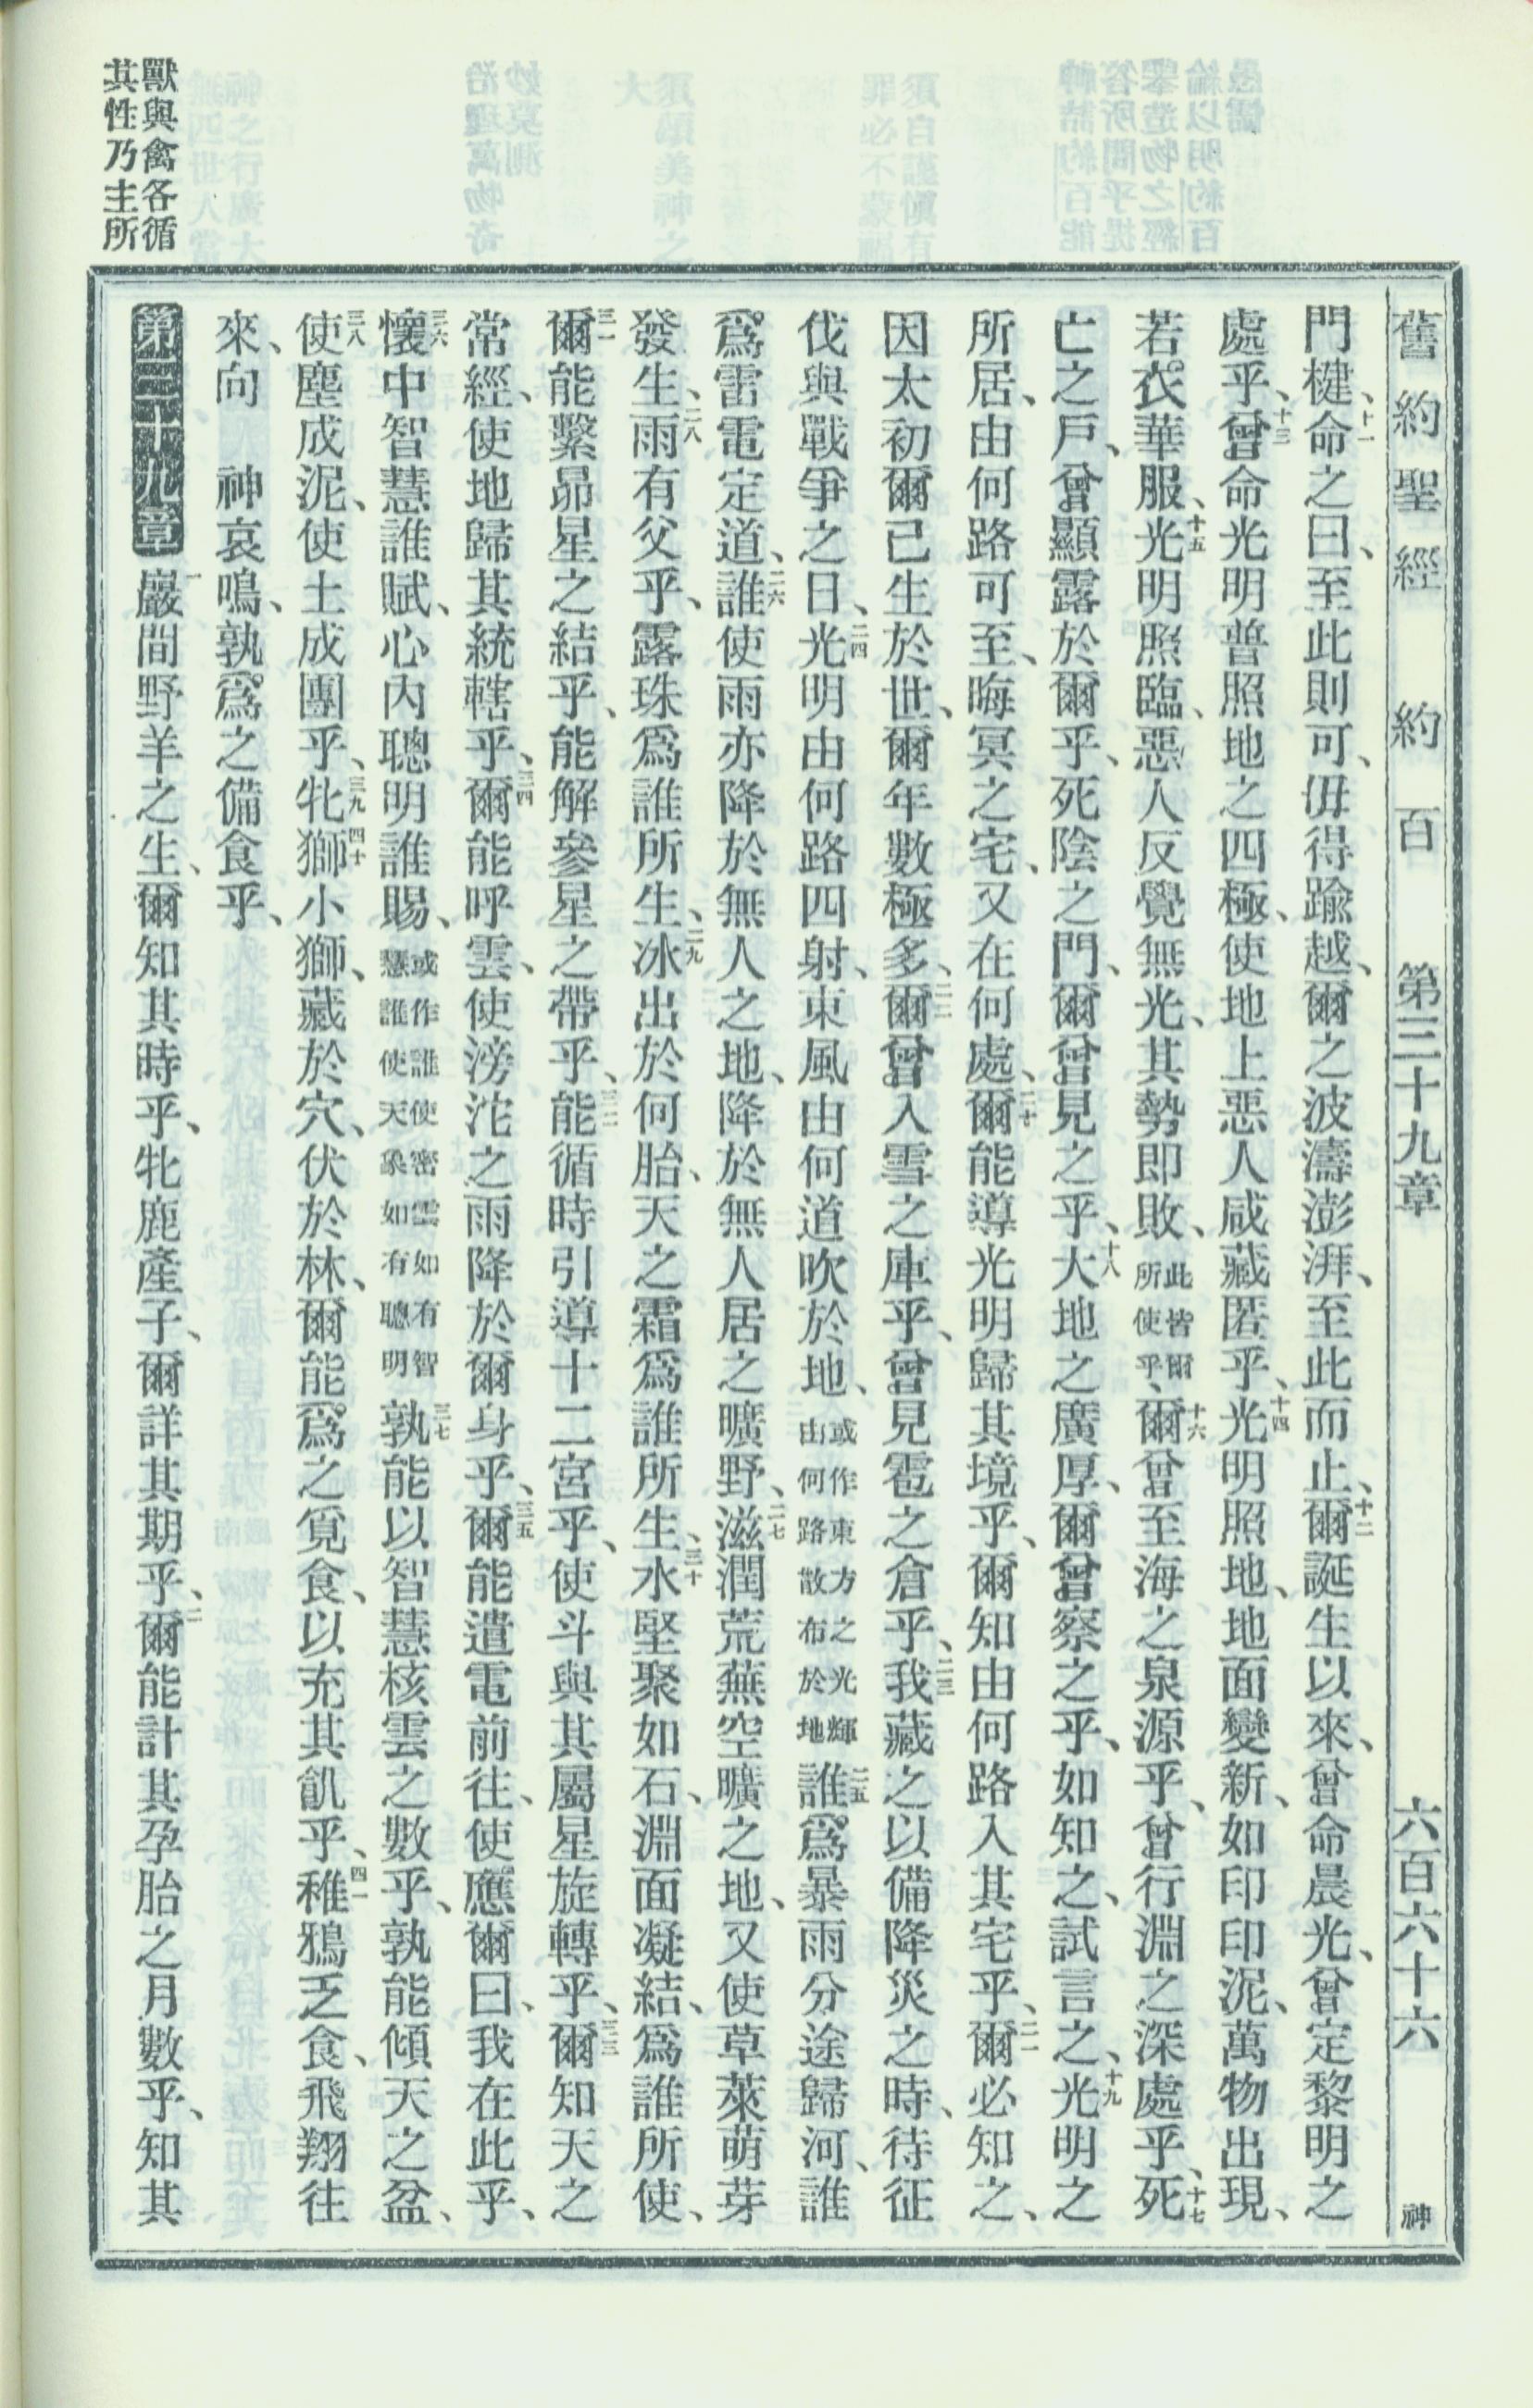 舊約聖經 約百 第三十九章 六百六十六 神
門楗、十一命之曰、至此則可、毋得踰越、爾之波濤澎湃、至此而止、十二爾誕生以來、曾命晨光、曾定黎明之
處乎、十三曾命光明普照地之四極、使地上惡人咸藏匿乎、十四光明照地、地面變新、如印印泥、萬物出現、
若衣華服、十五光明照臨、惡人反覺無光、其勢即敗、此皆爾所使乎、十六爾曾至海之泉源乎、曾行淵之深處乎、十七死
亡之戶、曾顯露於爾乎、死陰之門、爾曾見之乎、十八大地之廣厚、爾曾察之乎、如知之、試言之、十九光明之
所居、由何路可至、晦冥之宅、又在何處、二十爾能導光明歸其境乎、爾知由何路入其宅乎、二一爾必知之、
因太初爾已生於世、爾年數極多、二二爾曾入雪之庫乎、曾見雹之倉乎、二三我藏之以備降災之時、待征
伐與戰爭之日、二四光明由何路四射、東風由何道吹於地、或作東方之光輝由何路散布於地二五誰爲暴雨分途歸河、誰
爲雷電定道、二六誰使雨亦降於無人之地、降於無人居之曠野、二七滋潤荒蕪空曠之地、又使草萊萌芽
發生、二八雨有父乎、露珠爲誰所生、二九冰出於何胎、天之霜爲誰所生、三十水堅聚如石、淵面凝結、爲誰所使、
三一爾能繫昴星之結乎、能解參星之帶乎、三二能循時引導十二宮乎、使斗與其屬星旋轉乎、三三爾知天之
常經、使地歸其統轄乎、三四爾能呼雲、使滂沱之雨降於爾身乎、三五爾能遣電前往、使應爾曰、我在此乎、
三六懷中智慧誰賦、心內聰明誰賜、或作誰使密雲如有智慧誰使天象如有聰明三七孰能以智慧核雲之數乎、孰能傾天之盆、
三八使塵成泥、使土成團乎、三九牝獅四十小獅、藏於穴、伏於林、爾能爲之覓食、以充其飢乎、四一稚鴉乏食、飛翔往
來、向　神哀鳴、孰爲之備食乎、
第三十九章 一巖間野羊之生、爾知其時乎、牝鹿產子、爾詳其期乎、二爾能計其孕胎之月數乎、知其
獸與禽各循
其性乃主所